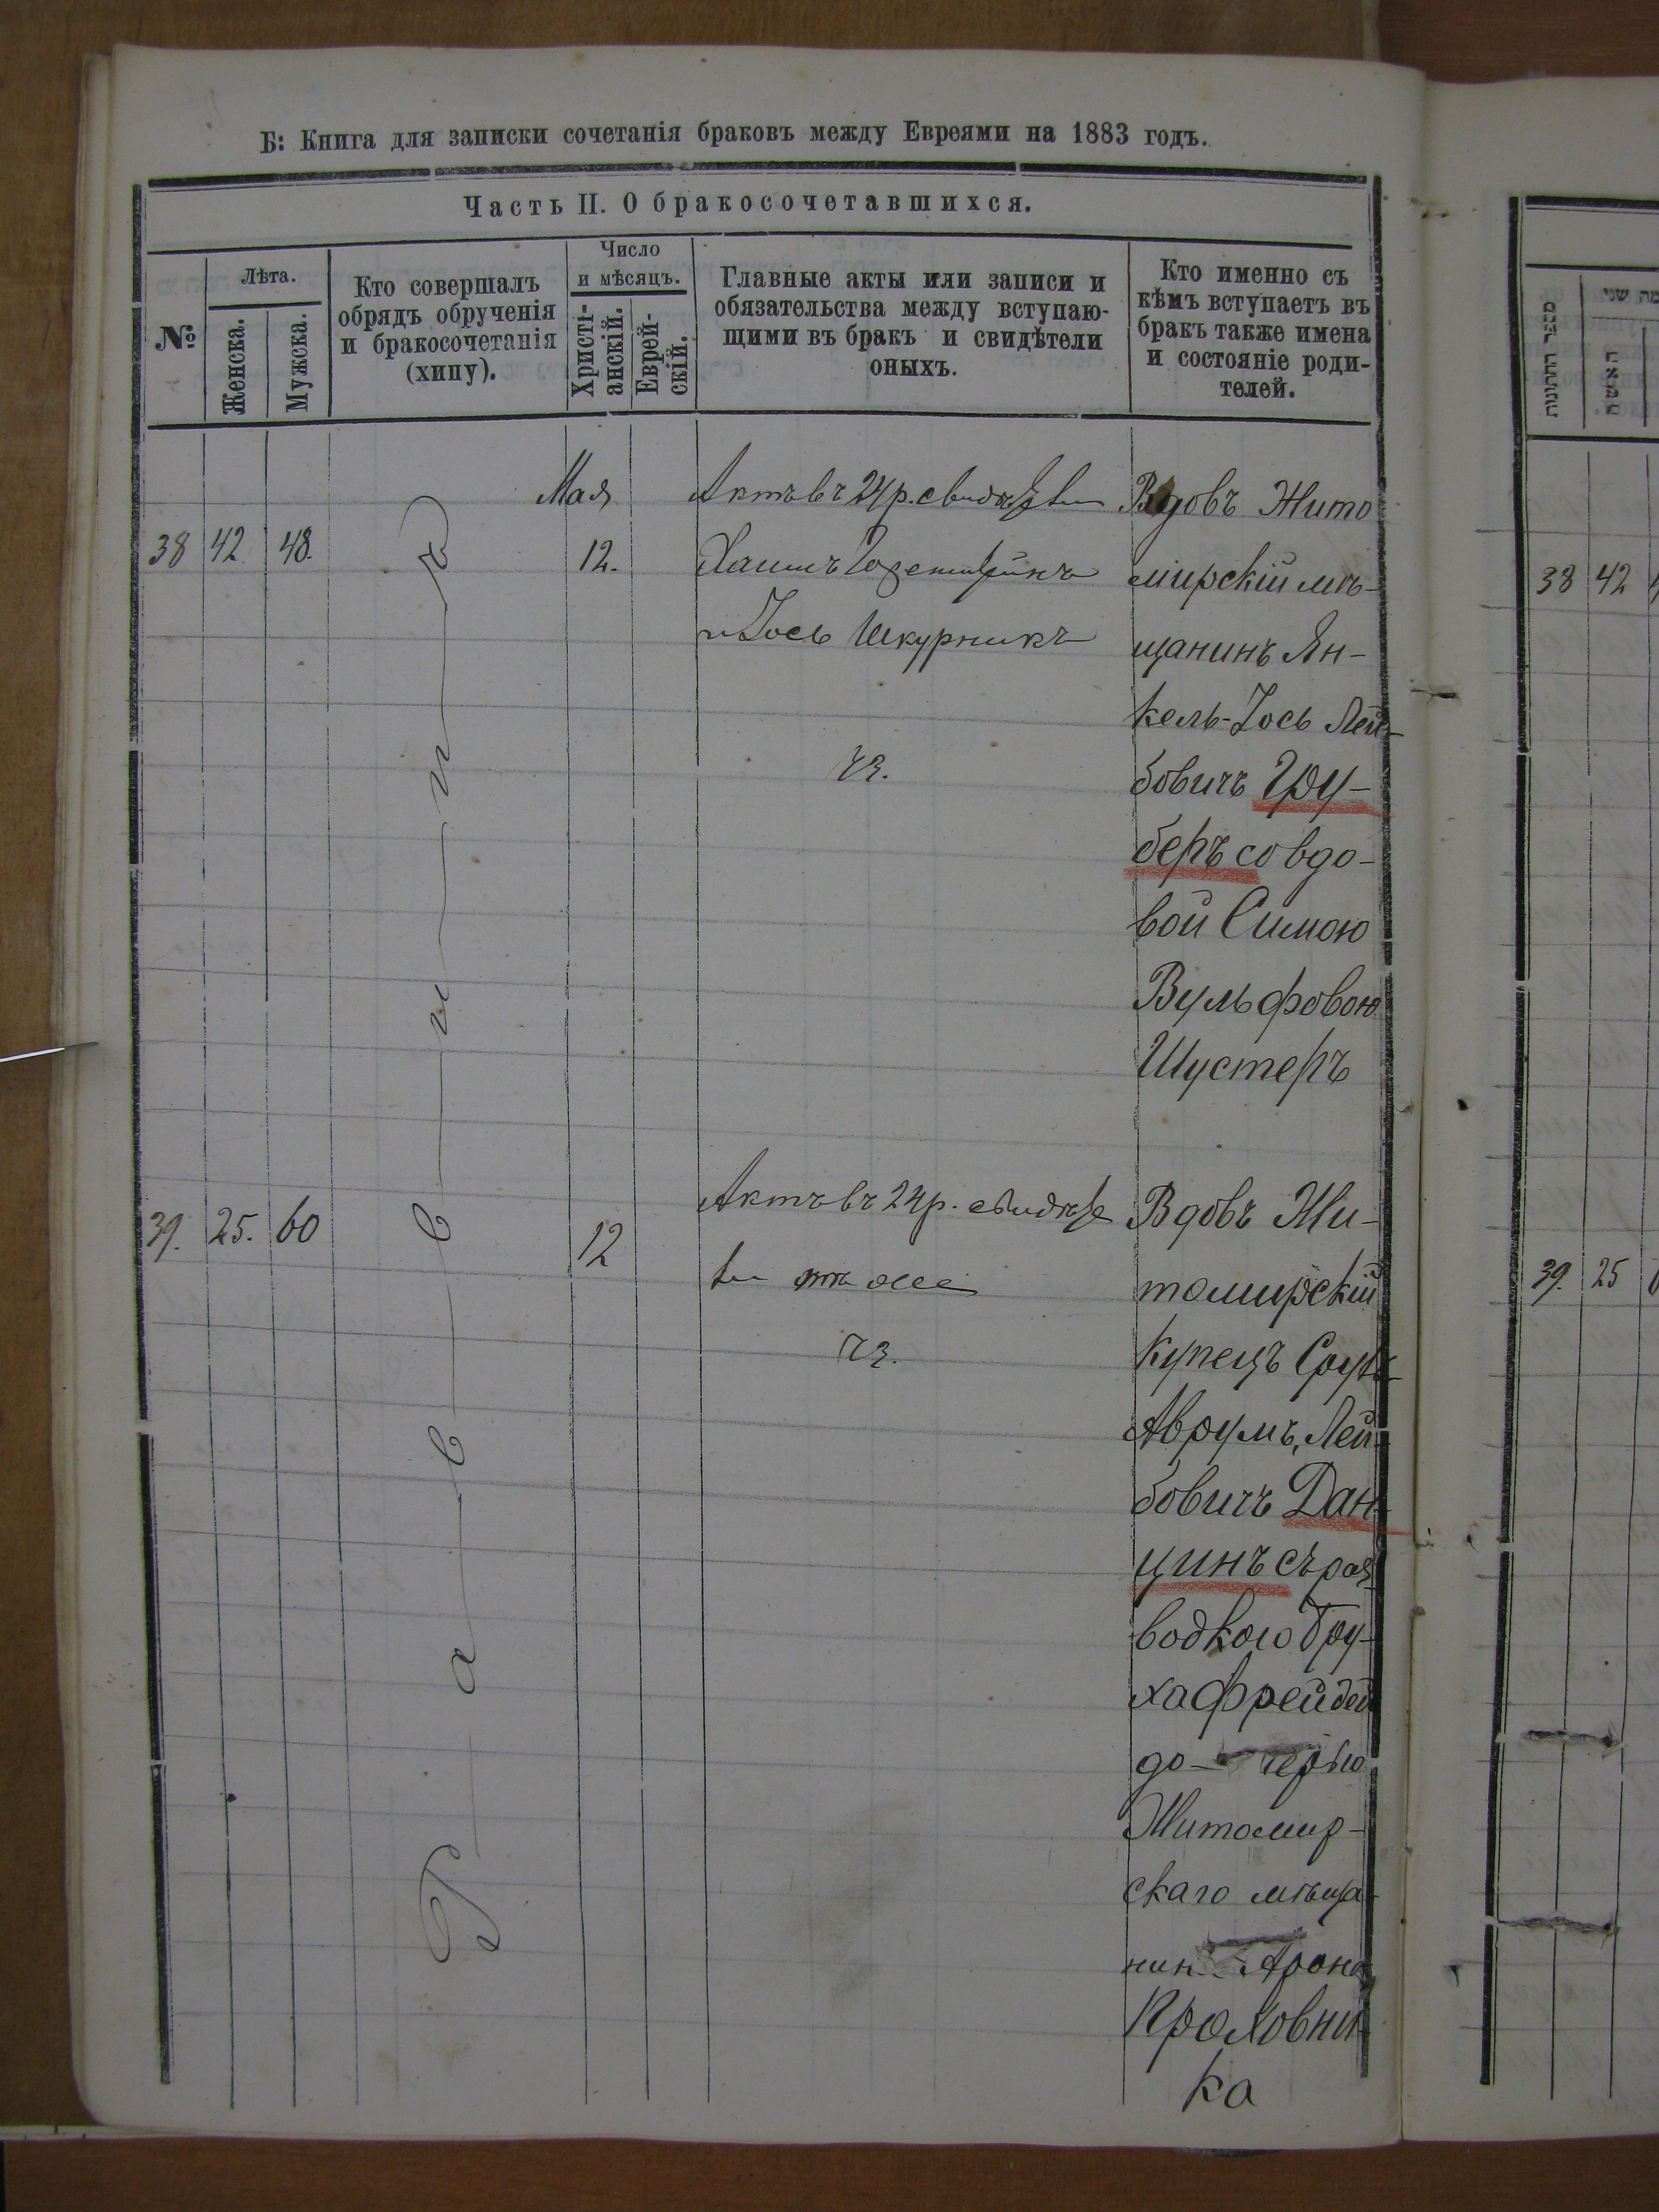 Б: Книга для записки сочетанія браковъ между Евреями на 1883 годъ.
Часть II. О бракосочетавшихся.
№
Лѣта.
Женска.
Мужска.
Кто совершалъ
обрядъ обрученія
и бракосочетанія
(хипу).
Число
и мѣсяцъ.
Христі-
анскій.
Еврей-
скій.
Главные акты или записи и
обязательства между вступаю-
щими въ бракъ и свидѣтели
оныхъ.
Кто именно съ
кѣмъ вступаетъ въ
бракъ также имена
и состояніе роди-
телей.
Раввинъ
38 42 48.
Мая
12.
Актъ въ 24 р.
Хаимъ
и Іось Шкурникъ
чз.
Вдовъ Жито
мирскій мѣ-
щанинъ Ян-
кель-Іось Лей-
бовичъ Гру-
беръ со вдо-
вой Симою
Вульфовою
Шустеръ
39. 25. 60
12
Актъ въ 24 р.
тѣ же
чз.
Вдовъ Жи-
томирскій
купецъ Сруль
Аврумъ Лей-
бовичъ Дан-
цинъ съ раз-
водкою Бру-
ха Фрейдей
до- черью
Житомир-
скаго мѣща-
нин Арона
Кроловни-
ка
מספר החתונות
האשה
מה שני
38 42
39. 25